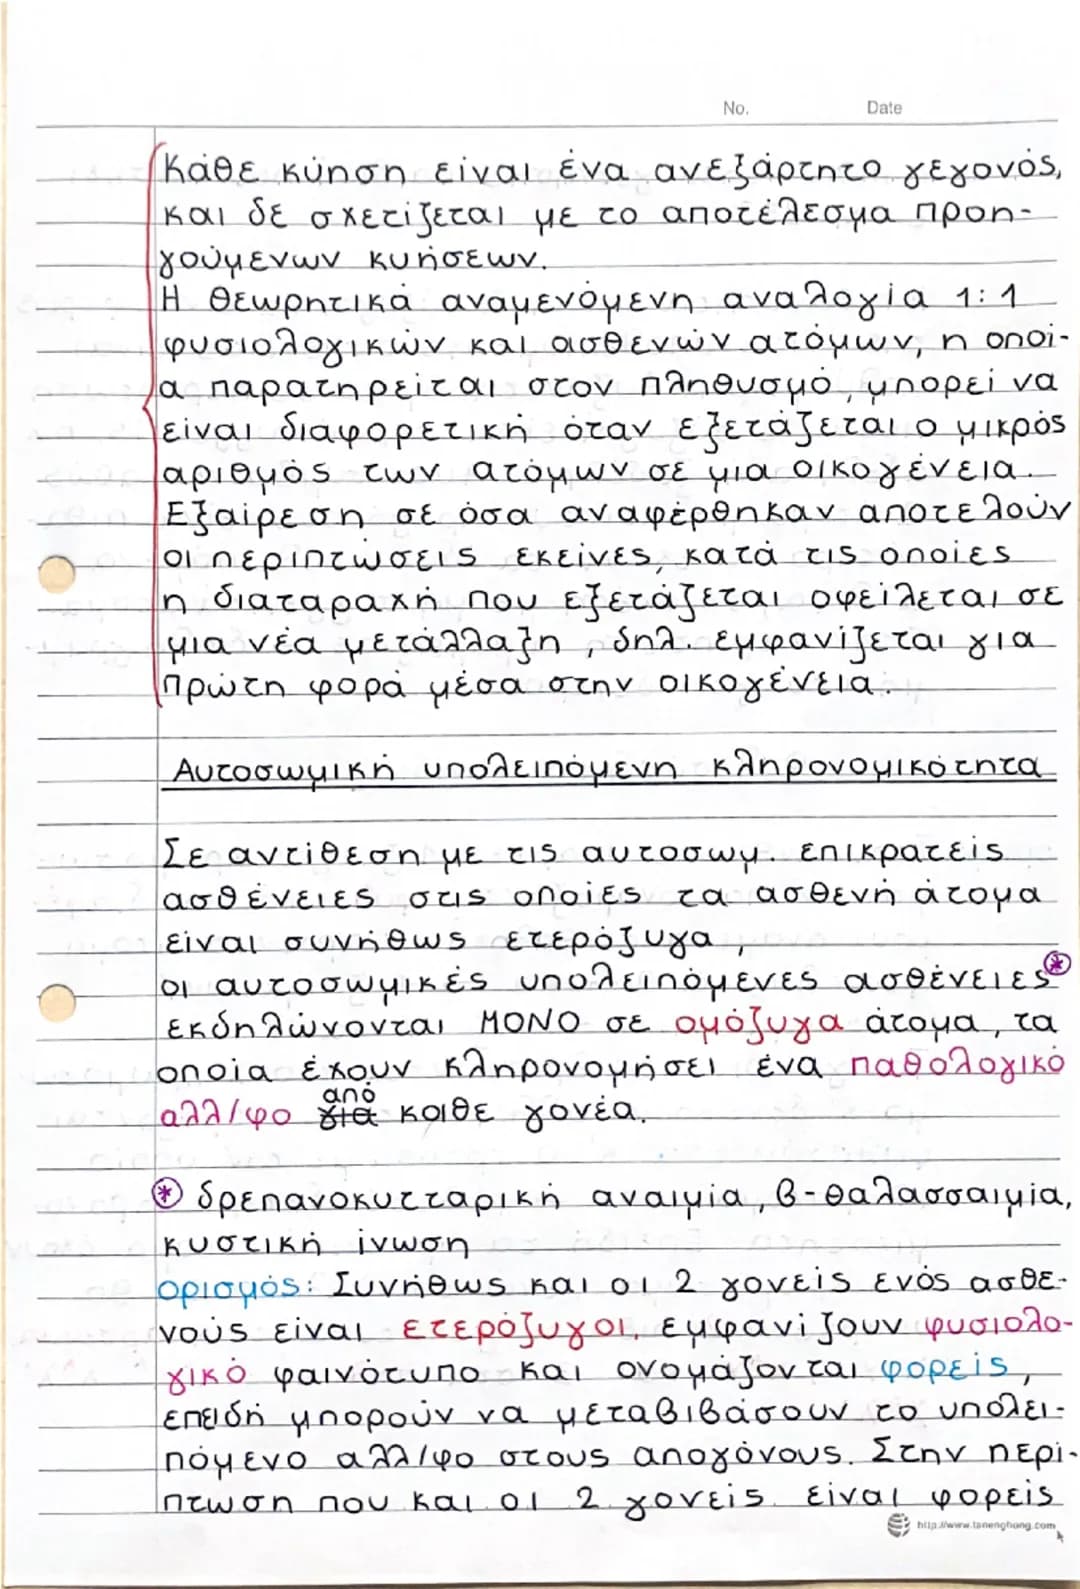 No. Date
Κάθε κύηση είναι ένα ανεξάρτητο γεγονός,
και δε σχετίζεται με το αποτέλεσμα προη-
γούμενων κυήσεων.
Η θεωρητικά αναμενόμενη αναλογία 1:1
φυσιολογικών και ασθενών ατόμων, η οποί-
α παρατηρείται στον πληθυσμό, μπορεί να
είναι διαφορετική όταν εξετάζεται ο μικρός
αριθμός των ατόμων σε μια οικογένεια.
Εξαίρεση σε όσα αναφέρθηκαν αποτελούν
οι περιπτώσεις εκείνες, κατά τις οποίες
η διαταραχή που εξετάζεται οφείλεται σε
μια νέα μετάλλαξη, δηλ. εμφανίζεται για
πρώτη φορά μέσα στην οικογένεια.
Αυτοσωμική υπολειπόμενη κληρονομικότητα
Σε αντίθεση με τις αυτοσωμ. επικρατείς
ασθένειες στις οποίες τα ασθενή άτομα
είναι συνήθως ετερόζυγα,
οι αυτοσωμικές υπολειπόμενες ασθένειες*
εκδηλώνονται ΜΟΝΟ σε ομόζυγα άτομα, τα
οποία έχουν κληρονομήσει ένα παθολογικό
από
αλλ/φο για κοιθε γονέα.
* δρεπανοκυτταρική αναιμία, β-θαλασσαιμία,
κυστική ίνωση
ορισμός: Συνήθως και οι 2 γονείς ενός ασθε-
νούς είναι ετερόζυγοι, εμφανίζουν φυσιολο-
γικό φαινότυπο και ονομάζονται φορείς,
επειδή μπορούν να μεταβιβάσουν το υπολει-
πόμενο αλλ/φο στους απογόνους. Στην περί-
πτωση που και οι 2 γονείς είναι φορείς
http://www.tanenghong.com